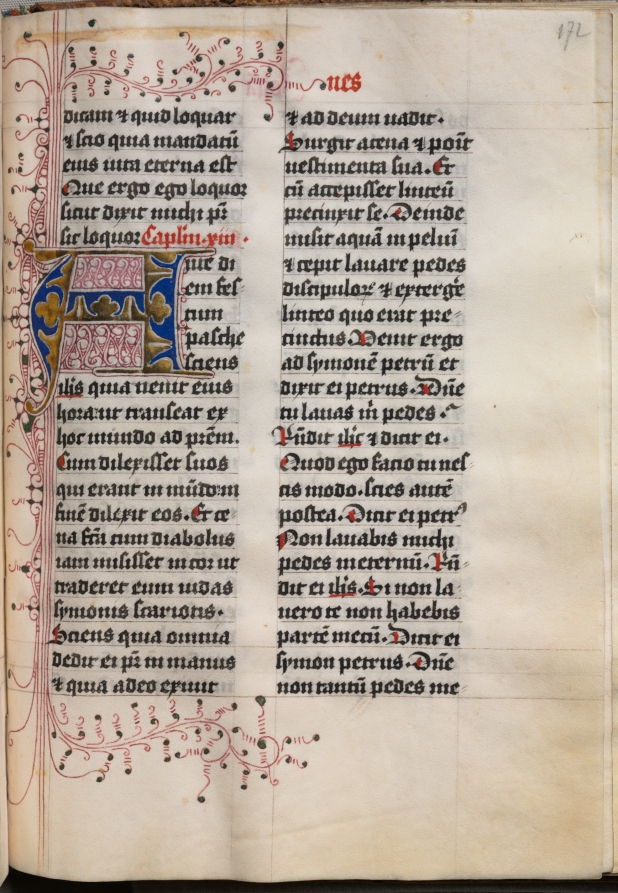 172
nes
dicam ⁊ quid loquar
⁊ scio quia mandatū
eius uita eterna est
Que ergo ego loquor
sicut dixit michi pr̄
sic loquor Caplm̄ xiii.
Ante di
em fes
tum
pasche
sciens
ih̄s quia uenit eius
hora ut transeat ex
hoc mundo ad prēm.
Cum dilexisset suos
qui erant in mūdo in
finē dilexit eos. Et ce
na fc̄a cum diabolus
iam misisset in cor ut
traderet eum iudas
symonis scariotis.
Sciens quia omnia
dedit ei pr̄ in manus
⁊ quia a deo exiuit
⁊ ad deum uadit.
Surgit a cena ⁊ ponit
uestimenta sua. Et
cū accepisset linteū
precinxit se. Deinde
misit aquā in peluī
⁊ cepit lauare pedes
discipuloꝝ ⁊ extergē
linteo quo erat pre
cinctus. Uenit ergo
ad symonē petrū et
dixit ei petrus. Dn̄e
tu lauas m̄ pedes.
Rn̄dit ih̄c ⁊ dicit ei.
Quod ego facio tu nes
cis modo. scies autē
postea. Dicit ei petrꝰ
Non lauabis michi
pedes in eternū. Rn̄
dit ei ih̄s. Si non la
uero te non habebis
partē mecū. Dicit ei
symon petrus. Dn̄e
non tantū pedes me